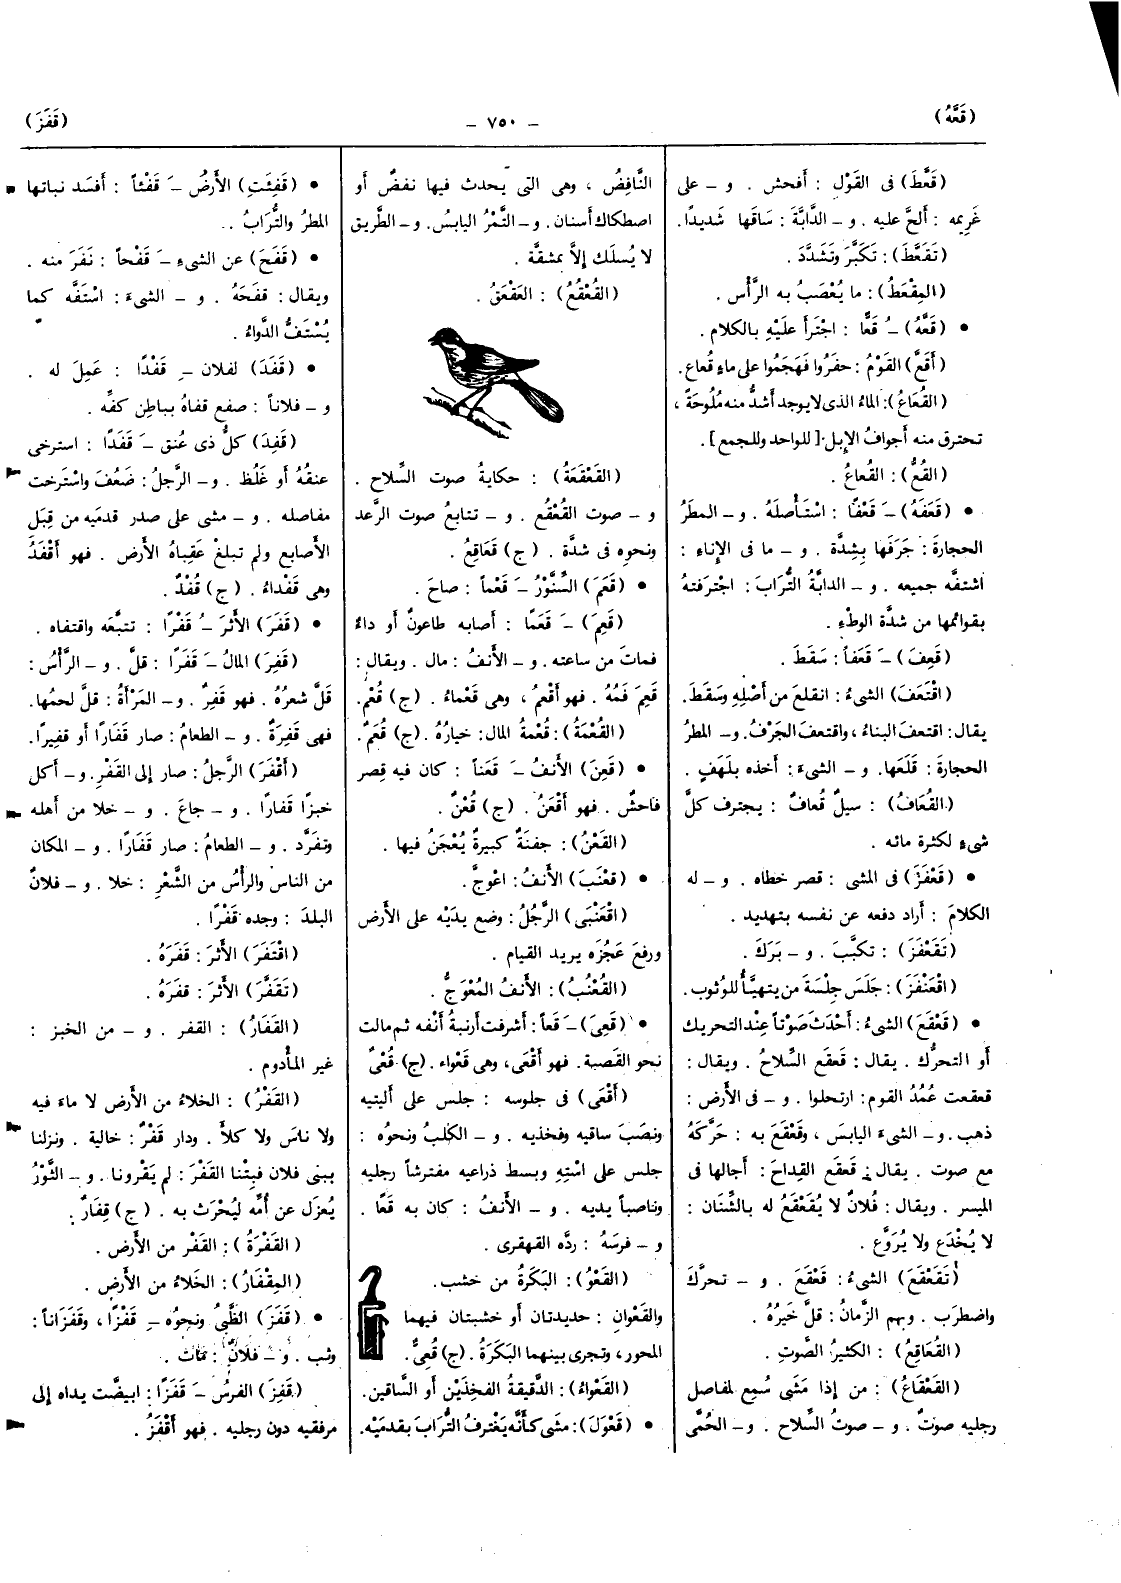 (قَعَّهُ)
– ٧٥٠ –
(قَفَزَ)
(قَعَّطَ) فى القَوْل : أفحش . و – على
غَرِيمه : ألحَّ عليه . و – الدَّابَّةَ : سَاقها شَديدًا .
(تَقَعَّطَ) : تَكَبَّرَ وتَشَدَّدَ .
(المِقْعَطُ) : ما يُعْصَبُ به الرَّأْس .
• (قَعَّهُ) –ُ قَعًّا : اجْتَرأ علَيْهِ بالكلام .
(أقَعَّ) القَوْمُ : حفَرُوا فَهَجَمُوا على ماءٍ قُعاع .
(القُعَاعُ) : الماءُ الذى لا يوجد أشدُّ منه مُلُوحَةً ،
تحترق منه أجوافُ الإِبل . [ للواحد وللجمع ] .
(القُعُّ) : القُعاعُ .
• (قَعَفَهُ) –َ قَعْفًا : اسْتَأْصلَهُ . و – المطَرُ
الحجارةَ : جَرَفَها بِشِدَّة . و – ما فى الإِناءِ :
اشتفَّه جميعه . و – الدابَّةُ التُّرابَ : اجترفتهُ
بقوائمها من شدَّة الوطْءِ .
(قَعِفَ) –َ قَعَفاً : سَقَطَ .
(اقْتَعَفَ) الشىءُ : انقلعَ من أَصْلِهِ وسَقَطَ .
يقال : اقتعفَ البناءُ ، واقتعفَ الجَرْفُ . و – المطرُ
الحجارةَ : قَلَعَها . و – الشىءَ : أخذه بلَهَفٍ .
(القُعَافُ) : سيلٌ قُعافٌ : يجترف كلَّ
شىءٍ لكثرة مائه .
• (قَعْفَزَ) فى المشى : قصر خطاه . و – له
الكلامَ : أراد دفعه عن نفسه بتهديد .
(تَقَعْفَزَ) : تكبَّبَ . و – بَرَكَ .
(اقْعَنْفَزَ) : جَلَسَ جِلْسَةَ من يتهيَّأ للوُثوب .
• (قَعْقَعَ) الشىءُ : أَحْدَثَ صَوْتاً عِنْد التحريك
أو التحرُّك . يقال : قَعقَع السِّلاحُ . ويقال :
قعقعت عُمُدُ القوم : ارتحلوا . و – فى الأرض :
ذهب . و – الشىءَ اليابسَ ، وقَعْقَعَ به : حَرَّكَهُ
مع صوت . يقال : قَعقَع القِداحَ : أجالها فى
الميسر . ويقال : فُلانٌ لا يُقَعْقَعُ له بالشِّنَان :
لا يُخْدَع ولا يُرَوَّع .
(تَقَعْقَعَ) الشىءُ : قَعْقَعَ . و – تحرَّكَ
واضطرَب . وبهم الزَّمانُ : قلَّ خَيرُهُ .
(القُعَاقِعُ) : الكثيرُ الصَّوتِ .
(القَعْقَاعُ) : من إذا مَشَى سُمِع لمفاصل
رجليه صَوتٌ . و – صوتُ السِّلاح . و – الحُمَّى
النَّافِضُ ، وهى التى يحدث فيها نفضٌ أو
اصطكاك أسنان . و – التَّمْرُ اليابسُ . و – الطَّريق
لا يُسلَك إلاَّ بمشقَّة .
(القُعْقُعُ) : العَقْعَقُ .
(القَعْقَعَةُ) : حكايةُ صوت السِّلاح .
و – صوت القُعْقُع . و – تتابعُ صوت الرَّعد
ونحوِه فى شدَّة . (ج) قَعَاقِعُ .
• (قَعَمَ) السِّنَّوْرُ –َ قَعْماً : صاحَ .
(قَعِمَ) –َ قَعَمًا : أصابه طاعونٌ أو داءٌ
فماتَ من ساعته . و – الأنفُ : مال . ويقال :
قَعِمَ فَمُهُ . فهو أَقْعَمُ ، وهى قَعْماءُ . (ج) قُعْم .
(القُعْمَةُ) : قُعْمةُ المال : خيارُهُ . (ج) قُعَمٌ .
• (قَعِنَ) الأنفُ –َ قَعَناً : كان فيه قِصر
فاحشٌ . فهو أَقْعَنُ . (ج) قُعْنٌ .
(القَعْنُ) : جفنَةٌ كبيرةٌ يُعْجَنُ فيها .
• (قَعْنَبَ) الأَنفُ : اعْوجَّ .
(اقْعَنْبَى) الرَّجُلُ : وضع يدَيْه على الأَرض
ورفعَ عَجُزَه يريد القيام .
(القُعْنُبُ) : الأَنفُ المُعْوَجُّ .
• (قَعِىَ) –َ قَعاً : أشرفت أرنبةُ أنْفه ثم مالت
نحو القَصبة . فهو أَقْعَى ، وهى قَعْواء . (ج) قُعْىٌ
(أَقْعَى) فى جلوسه : جلس على أليتيه
ونصَبَ ساقيه وفخذيه . و – الكلبُ ونحوُه :
جلس على اسْتِهِ وبسط ذراعيه مفترشاً رجليه
وناصباً يديه . و – الأَنفُ : كان به قَعًا .
و – فرسَهُ : ردَّه القهقرى .
(القَعْوُ) : البَكَرةُ من خشب .
والقَعْوانِ : حديدتان أو خشبتان فيهما
المحور ، وتجرى بينهما البَكَرَةُ . (ج) قُعِىٌّ .
(القَعْواءُ) : الدَّقيقةُ الفخِذَيْن أو السَّاقين .
• (قَعْوَلَ) : مشى كأنَّه يَغْترفُ التُّرابَ بقدميْه .
• (قَفِئَتِ) الأَرضُ –َ قَفْئاً : أفسَد نباتها
المطرُ والتُّرَابُ . .
• (قَفَحَ) عن الشىءِ –َ قَفْحاً : نَفَرَ منه .
ويقال : قفحَهُ . و – الشىءَ : اسْتفَّه كما
يُسْتَفُّ الدَّواءُ .
• (قَفَدَ) لفلان –ِ قَفْدًا : عَمِلَ له .
و – فلاناً : صفع قفاهُ بباطِن كفِّه .
(قَفِدَ) كلُّ ذى عُنق –َ قَفَدًا : استرخى
عنقُهُ أو غَلُظ . و – الرَّجلُ : ضَعُفَ واسْترخت
مفاصله . و – مشى على صدر قدميه من قِبَل
الأصابع ولم تبلغْ عَقِباهُ الأَرض . فهو أَقْفَدُ
وهى قَفْداءُ . (ج) قُفْدٌ .
• (قَفَرَ) الأَثَرَ –ُ قَفْرًا : تتبَّعَه واقتفاه .
(قَفِرَ) المالُ –َ قَفَرًا : قلَّ . و – الرَّأسُ :
قَلَّ شعرُهُ . فهو قَفِرٌ . و – المَرْأةُ : قلَّ لحمُها .
فهى قَفِرَةٌ . و – الطعامُ : صار قَفَارًا أو قفِيرًا .
(أَقْفَرَ) الرَّجلُ : صار إلى القَفْرِ . و – أكل
خبزًا قَفارًا . و – جاعَ . و – خلا من أهله
وتفَرَّد . و – الطعامُ : صار قَفَارًا . و – المكان
من الناس والرأْسُ من الشَّعْرِ : خلا . و – فلانٌ
البلدَ : وجده قَفْرًا .
(اقْتَفَرَ) الأَثرَ : قَفَرَهُ .
(تَقَفَّرَ) الأَثرَ : قفرَهُ .
(القَفَارُ) : القفر . و – من الخبز :
غير المأْدوم .
(القَفْرُ) : الخلاءُ من الأَرض لا ماءَ فيه
ولا ناسَ ولا كلأَ . ودار قَفْرٌ : خالية . ونزلنا
ببنى فلان فبِتْنا القَفْرَ : لم يَقْرونا . و – الثَّوْرُ
يُعزَل عن أُمِّه ليُحْرَث به . (ج) قِفَارٌ .
(القَفْرَةُ) : القَفْر من الأَرض .
(المِقْفَارُ) : الخَلاءُ من الأَرض .
• (قَفَزَ) الظَّبْىُ ونحوُه –ِ قَفْزًا ، وقَفَزَاناً :
وثب . و – فلانٌ : مَات .
(قَفِزَ) الفرسُ –َ قَفَزًا : ابيضَّت يداه إلى
مرفقيه دون رجليه . فهو أَقْفَزُ .